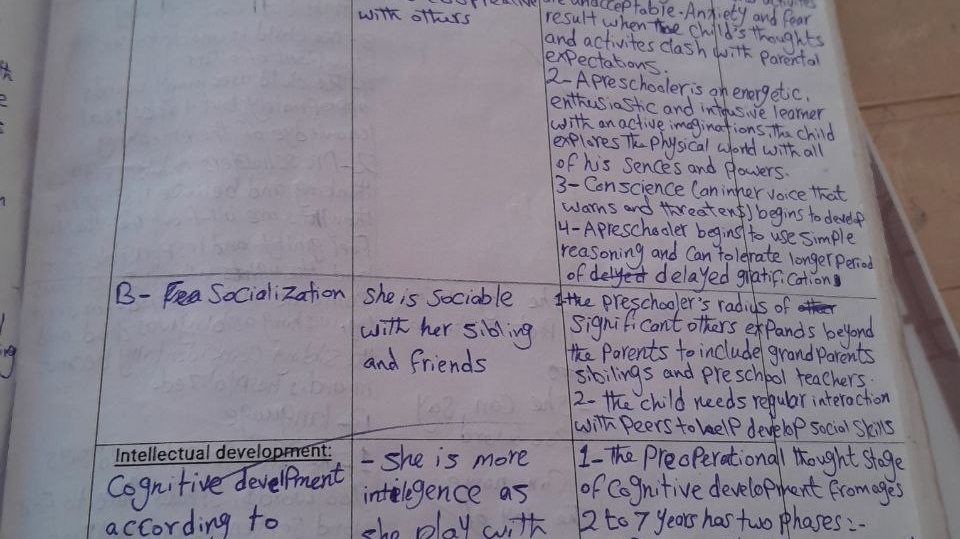 with others
are unacceptable-Anxiety and fear
result when the child's thoughts
and activites clash with parental
expectations.
2- A preschooler is an energetic,
enthusiastic and intrusive learner
with an active imaginations, the child
explores the physical world with all
of his sences and powers.
3- Conscience (an inner voice that
warns and threatens) begins to develop
4- A preschooler begins to use simple
reasoning and can tolerate longer period
of delyed delayed gratification
B- Fea Socialization
she is sociable
with her sibling
and friends
1- the preschooler's radius of other
significant others expands beyond
the parents to include grandparents
sibilings and preschool teachers.
2- the child needs regular interaction
with peers to help develop social skills
Intellectual development:
Cognitive develpment
according to
- she is more
inteligence as
she play with
1- the preoperational thought stage
of cognitive development from ages
2 to 7 years has two phases:-